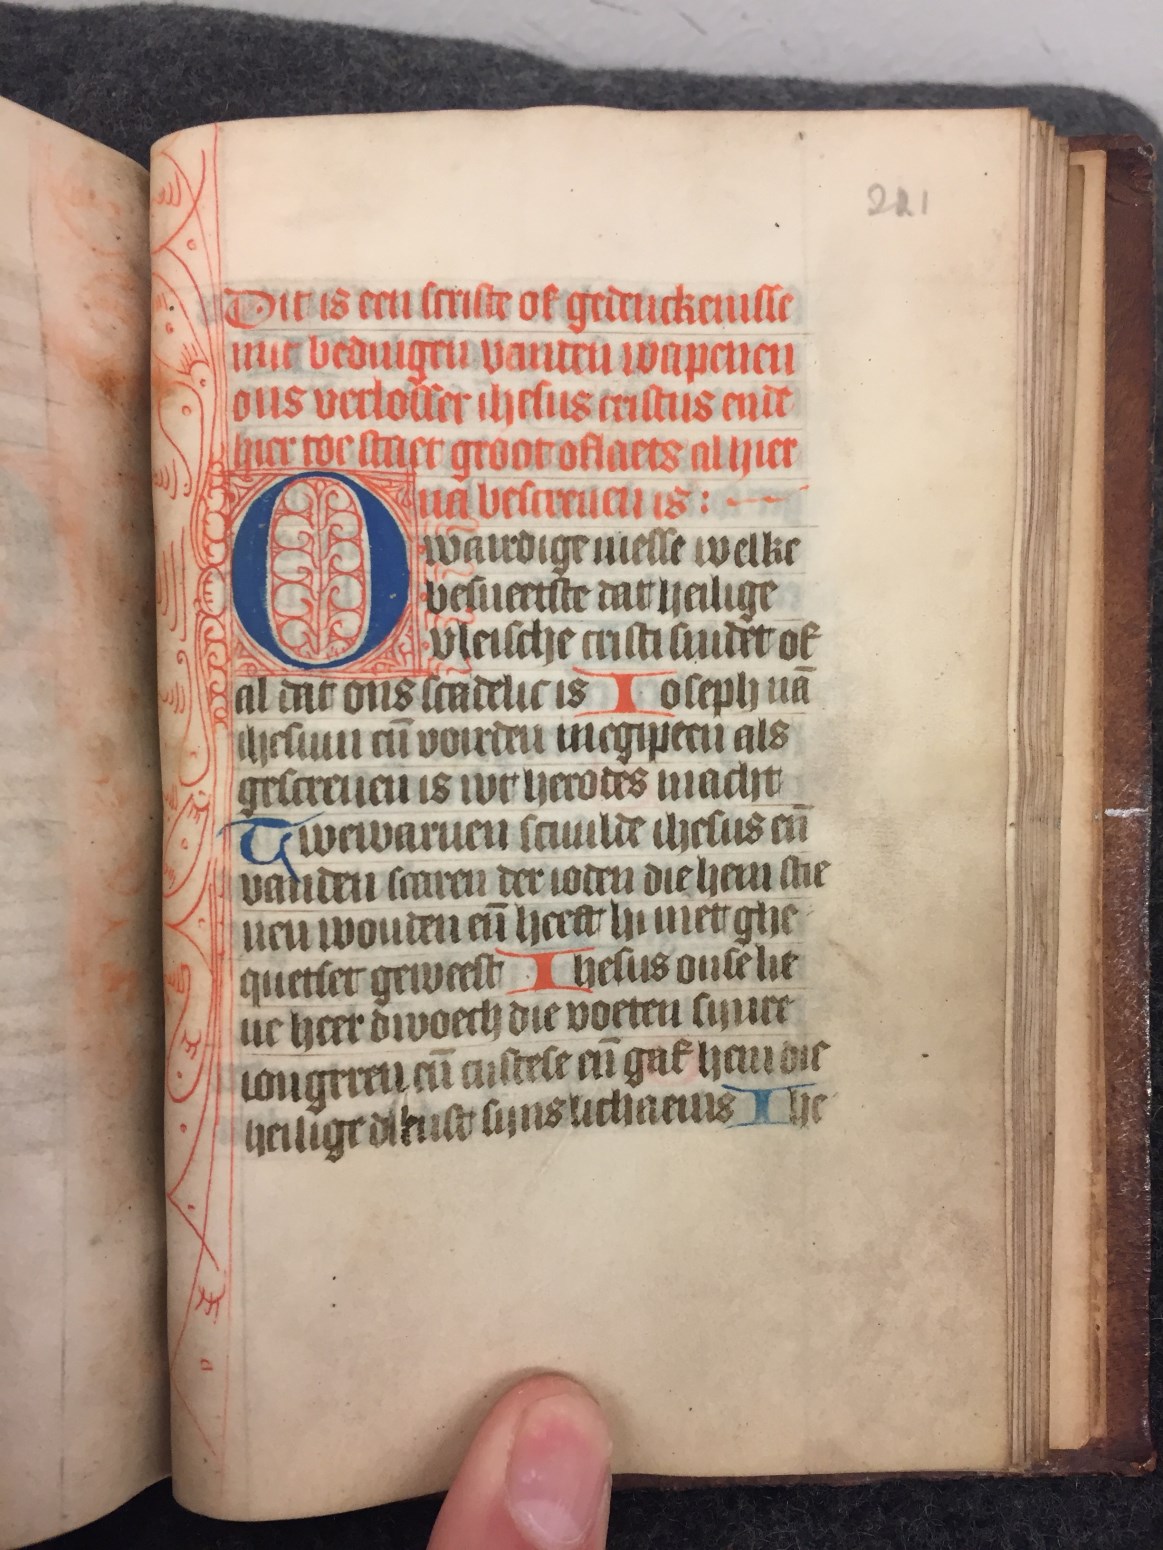 221
Dit is een scrifte of gedenckenisse
mit bedingen vanden wapenen
ons verlosser ihesus cristus ende
hier toe staet groot oflaets al hier
na bescreuen is :
O wardige messe welke
besneetste dat heilige
vleische cristi snidet of
al dat ons scadelic is Ioseph nā
ihesum eñ voirden in egipten als
gescreuen is wt herodes macht
Twewaruen scuulde ihesus eñ
vanden scaren der ioden die hem stie
nen wouden eñ heeft hi niet ghe
quetset geweest Ihesus onse lie
ue heer dwoech die voeten synre
iongeren eñ custese eñ gaf hem die
heilige dienst syns lichaems Ihe